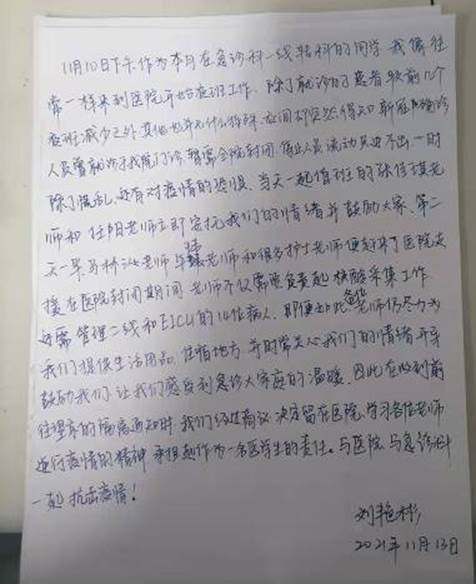 11月10日下午作为本月在急诊科一线轮科的同学,我像往
常一样来到医院开始夜班工作,除了就诊的患者较前几个
夜班减少之外其他也并无什么特殊,夜间时突然得知新冠确诊
人员曾就诊于我院门诊,需要全院封闭,停止人员流动只进不出,一时
除了慌乱,还有对疫情的恐惧。当天一起值班的张佳琪老
师和任阳老师立即安抚我们的情绪并鼓励大家。第二
天一早马林沁老师 老师和很多护士老师便赶来了医院支
援在医院封闭期间,老师不仅需要负责起核酸采集工作
还需管理二线和EICU的14位病人,即便如此各位老师仍尽力为
我们提供生活用品、住宿地方,并时常关心我们的情绪并亲
鼓励我们,让我们感受到急诊大家庭的温暖。因此在收到前
往望京的隔离通知时,我们经过商议,决定留在医院,学习各位老师
逆行疫情的精神,承担起作为一名医学生的责任。与医院、与急诊科
一起抗击疫情!
刘艳彬
2021年11月13日